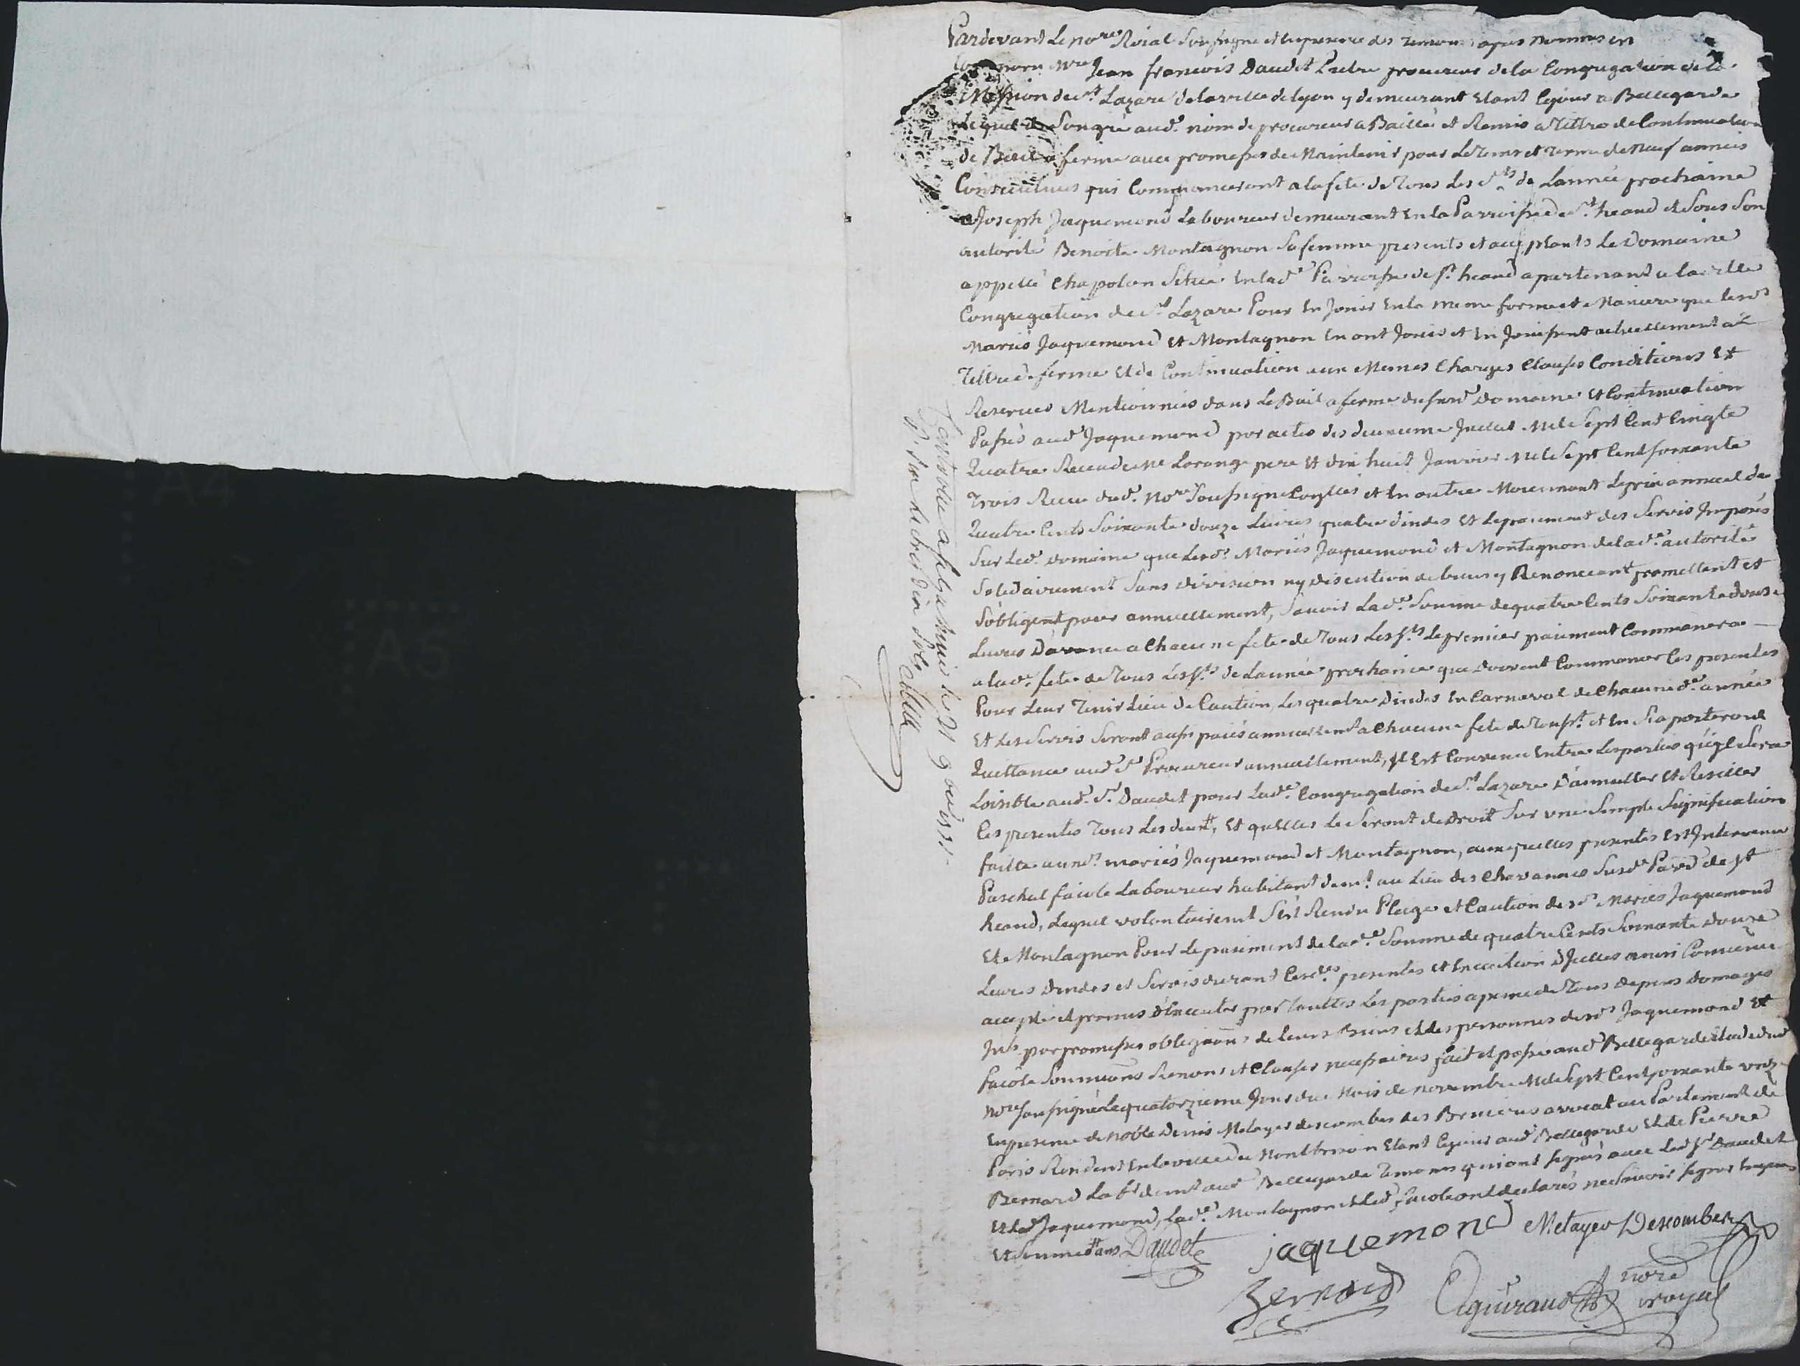 Pardevant le no.re Roial soussigné et en presence des temoins apres nommés en
Mre Jean francois Daudet Prebre procureur de la Congregation de la
Mission de St Lazare de la ville de lyon y demeurant Etant Cejour a Bellegarde
Lequel de Son gré aud. nom de procureur a Baillé et Remis a Titre de Continuation
de Bail a ferme avec promesses de Maintenir pour le Tems et Terme de Neuf années
Consecutives qui Commanceront a la fete de Tous Les Sts de Lannée prochaine
a Joseph Jaquemond Laboureur demeurant En la Parroisse de St heand et Sous Son
autorité Benoite Montagnon Sa femme presents et acceptants Le Domaine
appellé Chapolon Situé En lad.e Parroisse de St heand apartenant a la
Congregation de St Lazare Pour En Jouir En la meme forme et Maniere que lesd.
Mariés Jaquemond Et Montagnon En ont Jouis et En Jouissent actuellement a
Titre de ferme Et de Continuation aux Memes Charges Clauses Conditions Et
Reserves Mentionnées dans Le Bail a ferme dususd. Domaine Et Continuation
Passés aud. Jaquemond par actes des deuxieme Juillet Mile Sept Cent Cinqte
Quatre Receu de Me Lorange pere Et dix huit Janvier Mile Sept Cent soixante
Trois Receu dud. No.re Soussigné et En outre Moiennant Le prix annuel de
Quatre Cents Soixante douze Livres quatre dindes Et le paiement des Servis Imposés
Sur Led. domaine que Lesd. Mariés Jaquemond et Montagnon de lad.e autorité
Solidairement Sans division ny discution de biens y Renonceant promettent et
S'obligent paier annuellement, Scavoir Lad.e Somme de quatre Cents Soixante douze
Livres D'avance a Chacune fete de Tous Les Sts Le premier paiement Commancera
a lad.e fete de Tous Les Sts de Lannée prochaine que doivent Commancer Les presentes
Pour Leur Tenir Lieu de Caution, Les quatre dindes En Carnaval de Chacune d.e année
Et Les Servis Seront aussi paiés annuellement a Chacune fete de Touss.t et En Raporteront
Quittance aud. Sr Procureur annuellement, Il Est Convenu Entre Les parties qu'il Sera
Loisible aud. Sr. Daudet pour Lad.e Congregation de St Lazare D'annuller Et Resilier
Ces presentes Tous Les Et qu'Elles Le Seront de droit Sur une Simple Signification
faitte auxd. mariés Jaquemond et Montagnon, auxquelles presentes Est Intervenu
Paschal faiole Laboureur habitant demt au Lieu des Chavanaes Susd.e Parr. de St
heand, Lequel volontairemt S'est Rendu Pleige et Caution desd. Mariés Jaquemond
Et Montagnon Pour Le paiement de lad.e Somme de quatre Cents Soixante douze
Livres dindes et Servis durant Cesd.es presentes et
accepté et promis D'Executer par Touttes Les parties a peine de Tous depens domages
par promesses obligaons de Leurs Biens et des personnes desd. Jaquemond Et
faiole Soumions Renons et Clauses necessaires fait et passé aud. Bellegarde Etude dud.
no.re soussigné Le quatorzieme Jour du Mois de novembre Mile Sept Cent soixante onze
En presence de Noble Denis Metayer descombes des Bernieres avocat au Parlement de
Paris Resident En la ville de Montbrison Etant Cejour aud. Bellegarde Et de Pierre
Bernard Lab.r demt aud. Bellegarde Temoins qui ont signés avec Led. Sr Daudet
Et led. Jaquemond, Lad.e Montagnon et Led. faiole ont declarés ne Scavoir signer
Daudet
jaquemond
Metayer Descombes
Bernard
Eguiraud
nore
royal
Controlé a chazelles le 21 9bre 1771